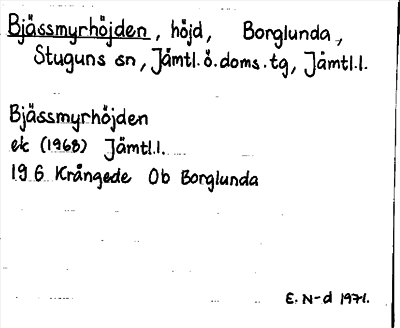 Bjässmyrhöjden, höjd, Borglunda,
Stuguns sn, Jämtl.ö.doms.tg, Jämtl.l.
Bjässmyrhöjden
ek (1968) Jämtl.l.
19 G Krångede Ob Borglunda
E. N-d 1971.